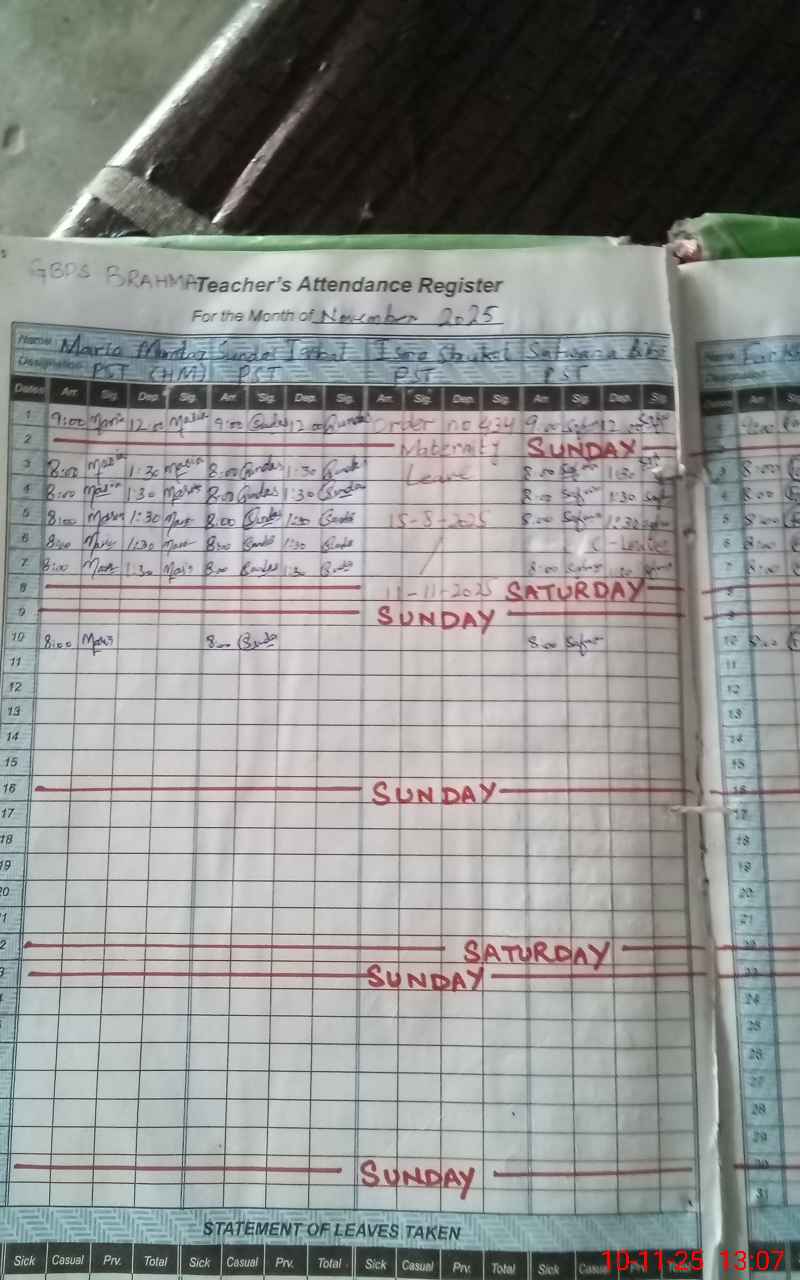 GBPS BRAHMA Teacher's Attendance Register
For the Month of November 2025
Name Maria Sundas Iqbal Safwana Bibi Name
Designation PST (HM) PST PST PST Designation
Dates Arr. Sig. Dep. Sig. Arr. Sig. Dep. Sig. Arr. Sig. Dep. Sig. Arr. Sig. Dep. Sig. Dates Arr. Sig.
1 9:00 Maria 12:00 Maria 9:00 Sundas 12:00 Sundas Order no 434 9:00 12:00 1 9:00
2 Maternity SUNDAY 2
3 8:00 Maria 1:30 Maria 8:00 Sundas 1:30 Sundas Leave 8:00 1:30 3 8:00
4 8:00 Maria 1:30 Maria 8:00 Sundas 1:30 Sundas 8:00 1:30 4 8:00
5 8:00 Maria 1:30 Maria 8:00 Sundas 1:30 Sundas 15-8-2025 8:00 1:30 5 8:00
6 8:00 Maria 1:30 Maria 8:00 Sundas 1:30 Sundas / C-Leave 6 8:00
7 8:00 Maria 1:30 Maria 8:00 Sundas 1:30 Sundas 8:00 7 8:00
8 11-11-2025 SATURDAY 8
9 SUNDAY 9
10 8:00 Maria 8:00 Sundas 8:00 10 8:00
11 11
12 12
13 13
14 14
15 15
16 SUNDAY 16
17 17
18 18
19 19
20 20
21 21
22 SATURDAY 22
23 SUNDAY 23
24
25
26
27
28
29
SUNDAY 30
31
STATEMENT OF LEAVES TAKEN
Sick Casual Prv. Total Sick Casual Prv. Total Sick Casual Prv. Total Sick Casual Prv. Total
10-11-25 13:07